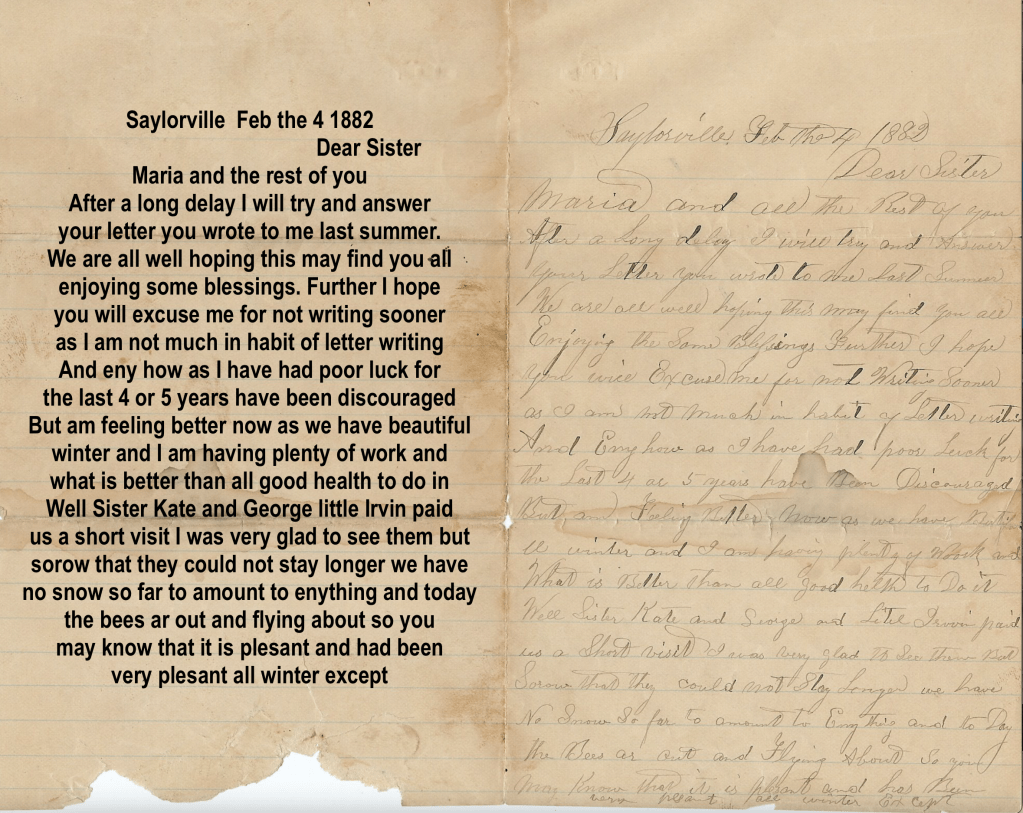 Saylorville  Feb the 4 1882
Dear Sister
Maria and the rest of you
After a long delay I will try and answer
your letter you wrote to me last summer.
We are all well hoping this may find you all
enjoying some blessings. Further I hope
you will excuse me for not writing sooner
as I am not much in habit of letter writing
And eny how as I have had poor luck for
the last 4 or 5 years have been discouraged
But am feeling better now as we have beautiful
winter and I am having plenty of work and
what is better than all good health to do in
Well Sister Kate and George little Irvin paid
us a short visit I was very glad to see them but
sorow that they could not stay longer we have
no snow so far to amount to enything and today
the bees ar out and flying about so you
may know that it is plesant and had been
very plesant all winter except
Saylorville, Feb the 4 1882
Dear Sister
Maria and all the Rest of you
After a Long delay I will try and Answer
your Letter you wrote to me Last Summer
We are all well hoping this may find you all
Enjoying the Same Blessings Further I hope
you will Excuse me for not Writing Sooner
as I am not Much in habit of Letter writin
And Enyhow as I have had poor Luck for
the Last 4 or 5 years have Been Discouraged
But am Feeling Better Now as we have Beutif
ull winter and I am having plenty of Work and
What is Better than all good helth to Do it
Well Sister Kate and George and Litel Irvin paid
us a Short visit I was very glad to See them But
Sorow that they could not Stay Longer we have
No Snow So far to amount to Enything and to Day
the Bees ar out and Flying About So you
may Know that it is plesant and has Been
very plesant all winter Except